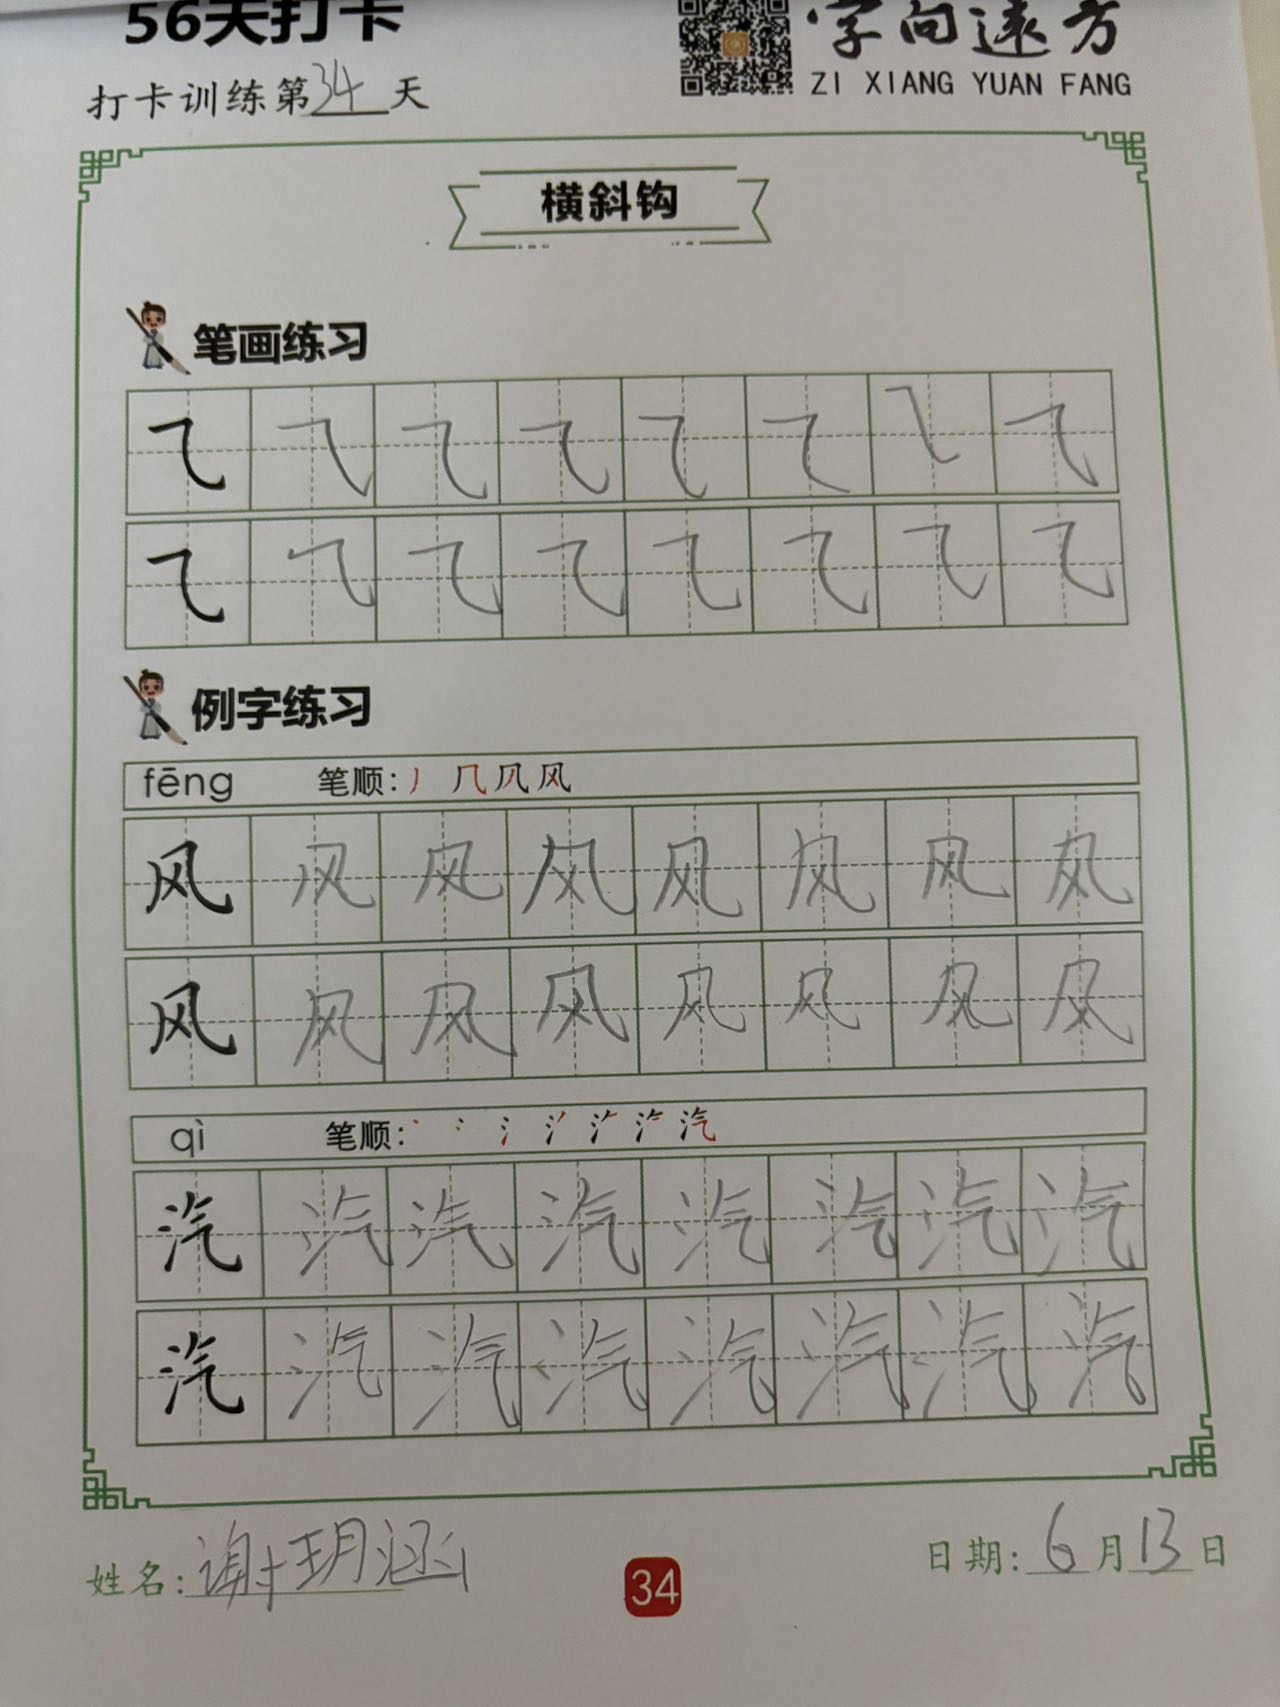 56天打卡
字向远方
ZI XIANG YUAN FANG
打卡训练第34天
横斜钩
笔画练习
㇈ ㇈ ㇈ ㇈ ㇈ ㇈ ㇈ ㇈
㇈ ㇈ ㇈ ㇈ ㇈ ㇈ ㇈ ㇈
例字练习
fēng 笔顺: 丿 几 凤 风
风 风 风 风 风 风 风 风
风 风 风 风 风 风 风 风
qì 笔顺: 汽
汽 汽 汽 汽 汽 汽 汽 汽
汽 汽 汽 汽 汽 汽 汽 汽
姓名:谢玥涵
34
日期:6月13日